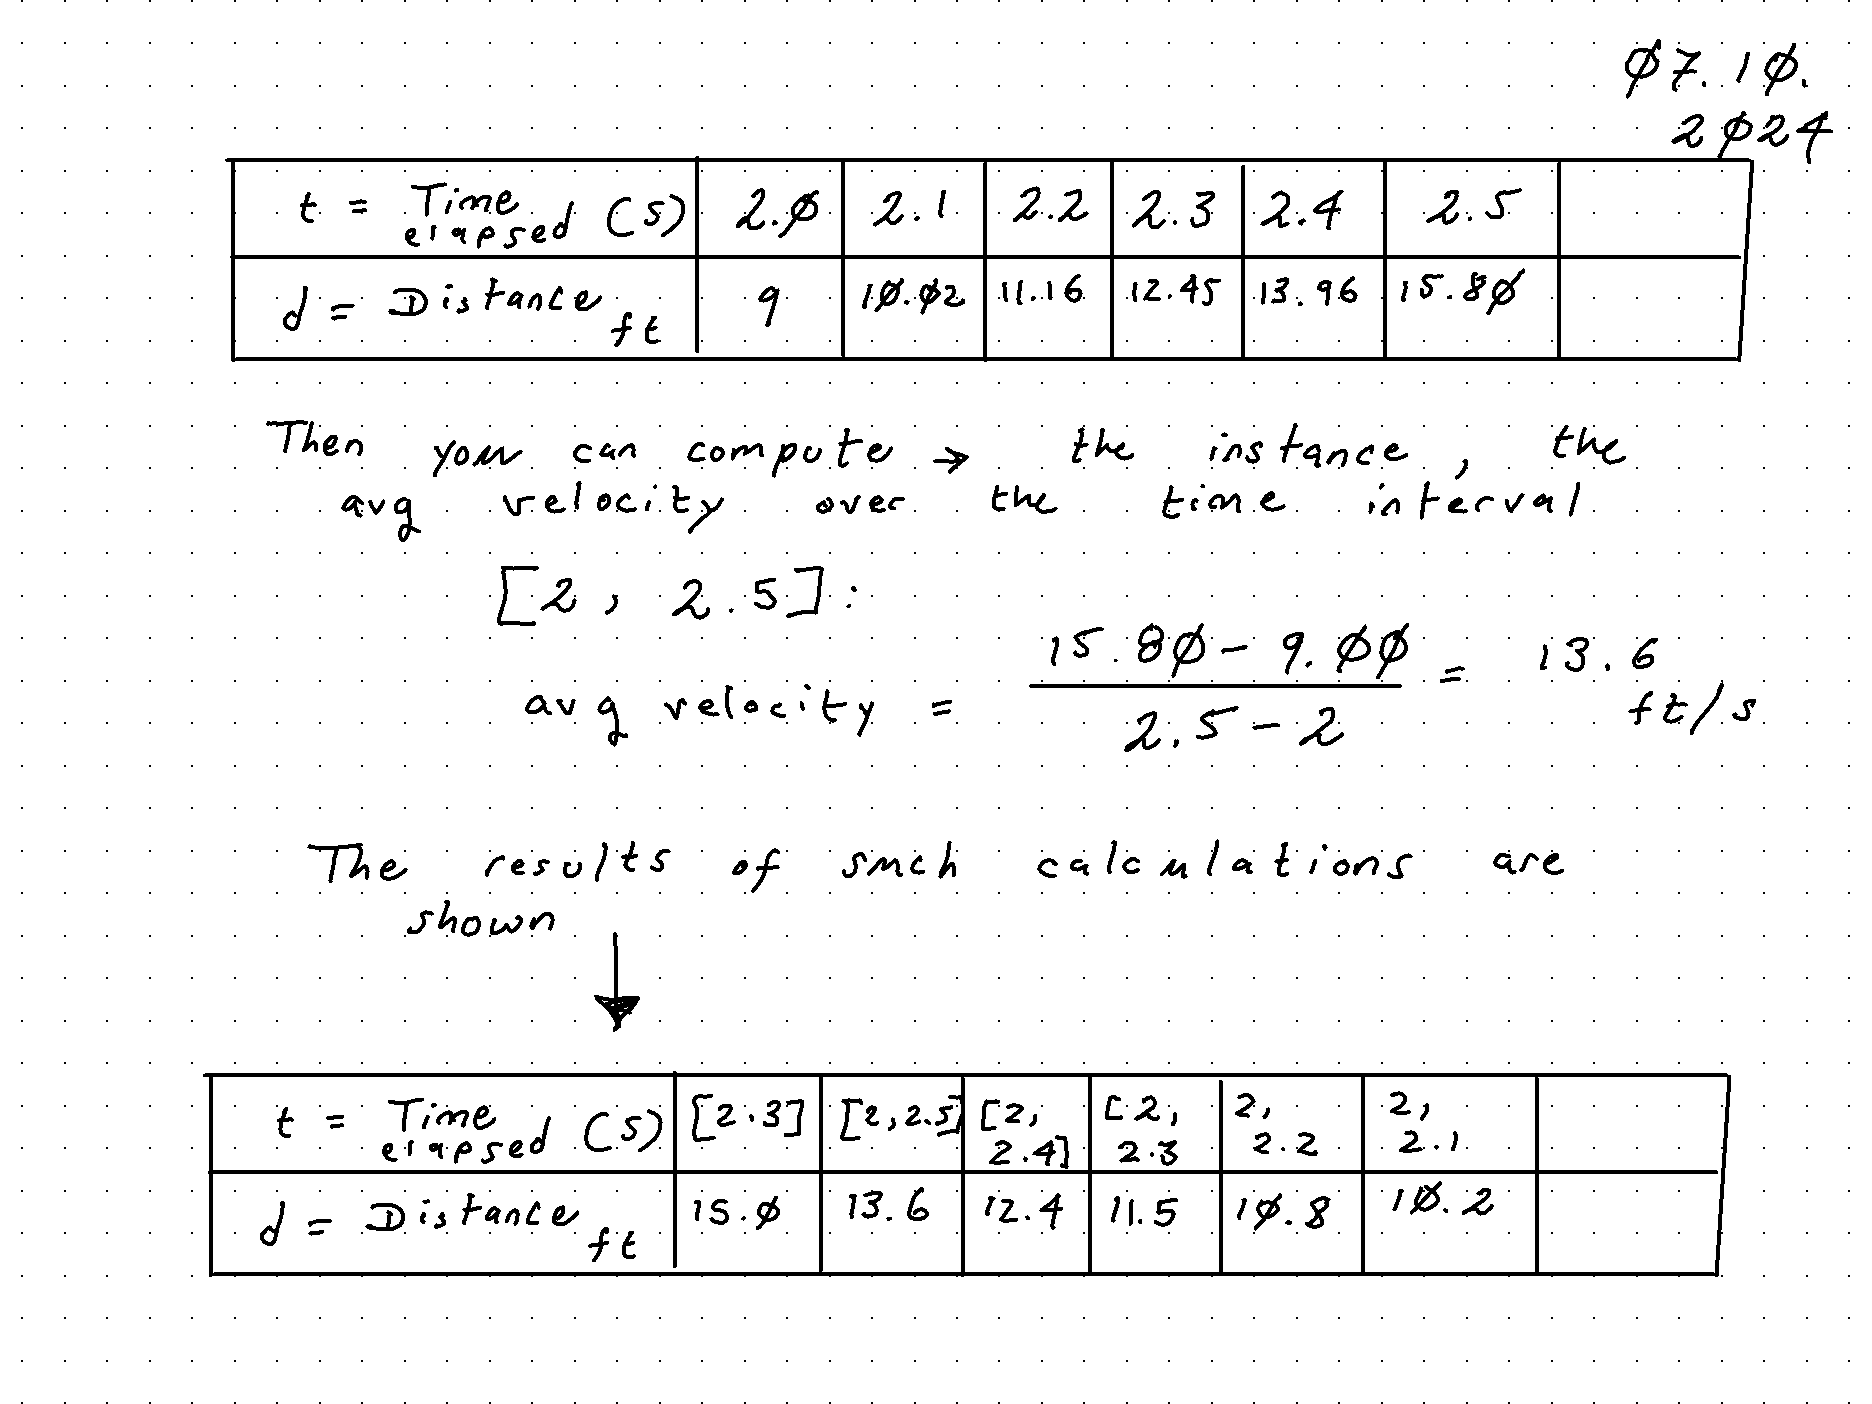 07.10.
2024
t = Time elapsed (s) 2.0 2.1 2.2 2.3 2.4 2.5
d = Distance ft 9 10.02 11.16 12.45 13.96 15.80
Then you can compute → the instance, the
avg velocity over the time interval
[2, 2.5]:
avg velocity = (15.80 - 9.00) / (2.5 - 2) = 13.6 ft/s
The results of such calculations are
shown ↓
t = Time elapsed (s) [2.3] [2,2.5] [2, 2.4] [2, 2.3 2, 2.2 2, 2.1
d = Distance ft 15.0 13.6 12.4 11.5 10.8 10.2